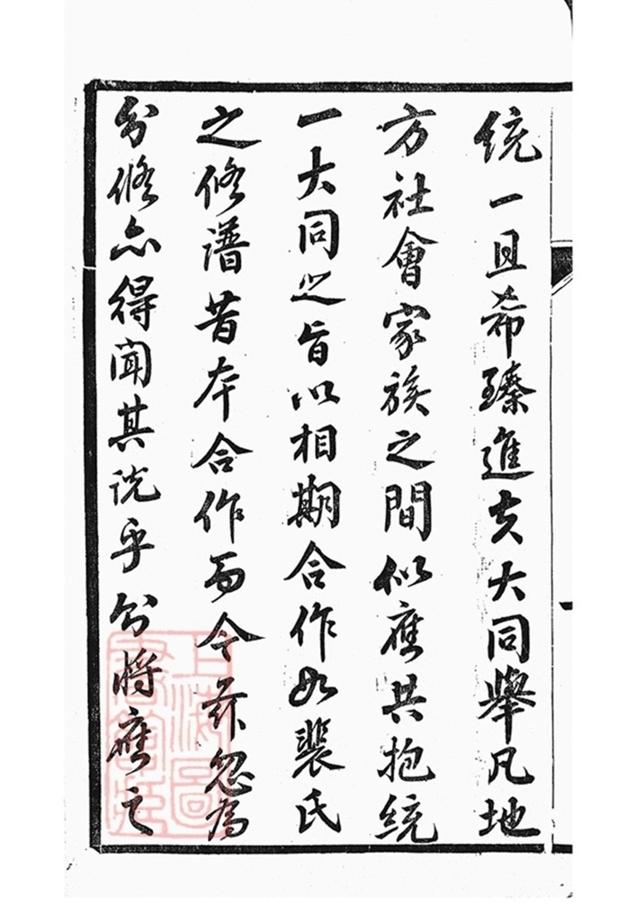 統一且希臻進大同舉凡地
方社會家族之間似應共抱統
一大同之旨以相期合作如裴氏
之修譜昔本合作而今茲忽為
分修亦得聞其說乎將應之
上海圖
書館藏